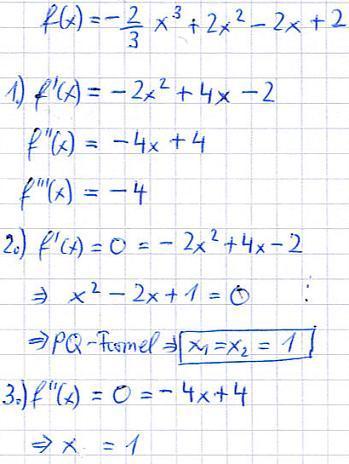 f(x) = -2/3 x³ + 2x² - 2x + 2
1.) f'(x) = -2x² + 4x - 2
f''(x) = -4x + 4
f'''(x) = -4
2.) f'(x) = 0 = -2x² + 4x - 2
⇒ x² - 2x + 1 = 0 :
⇒ PQ-Formel ⇒ x₁ = x₂ = 1
3.) f''(x) = 0 = -4x + 4
⇒ x = 1